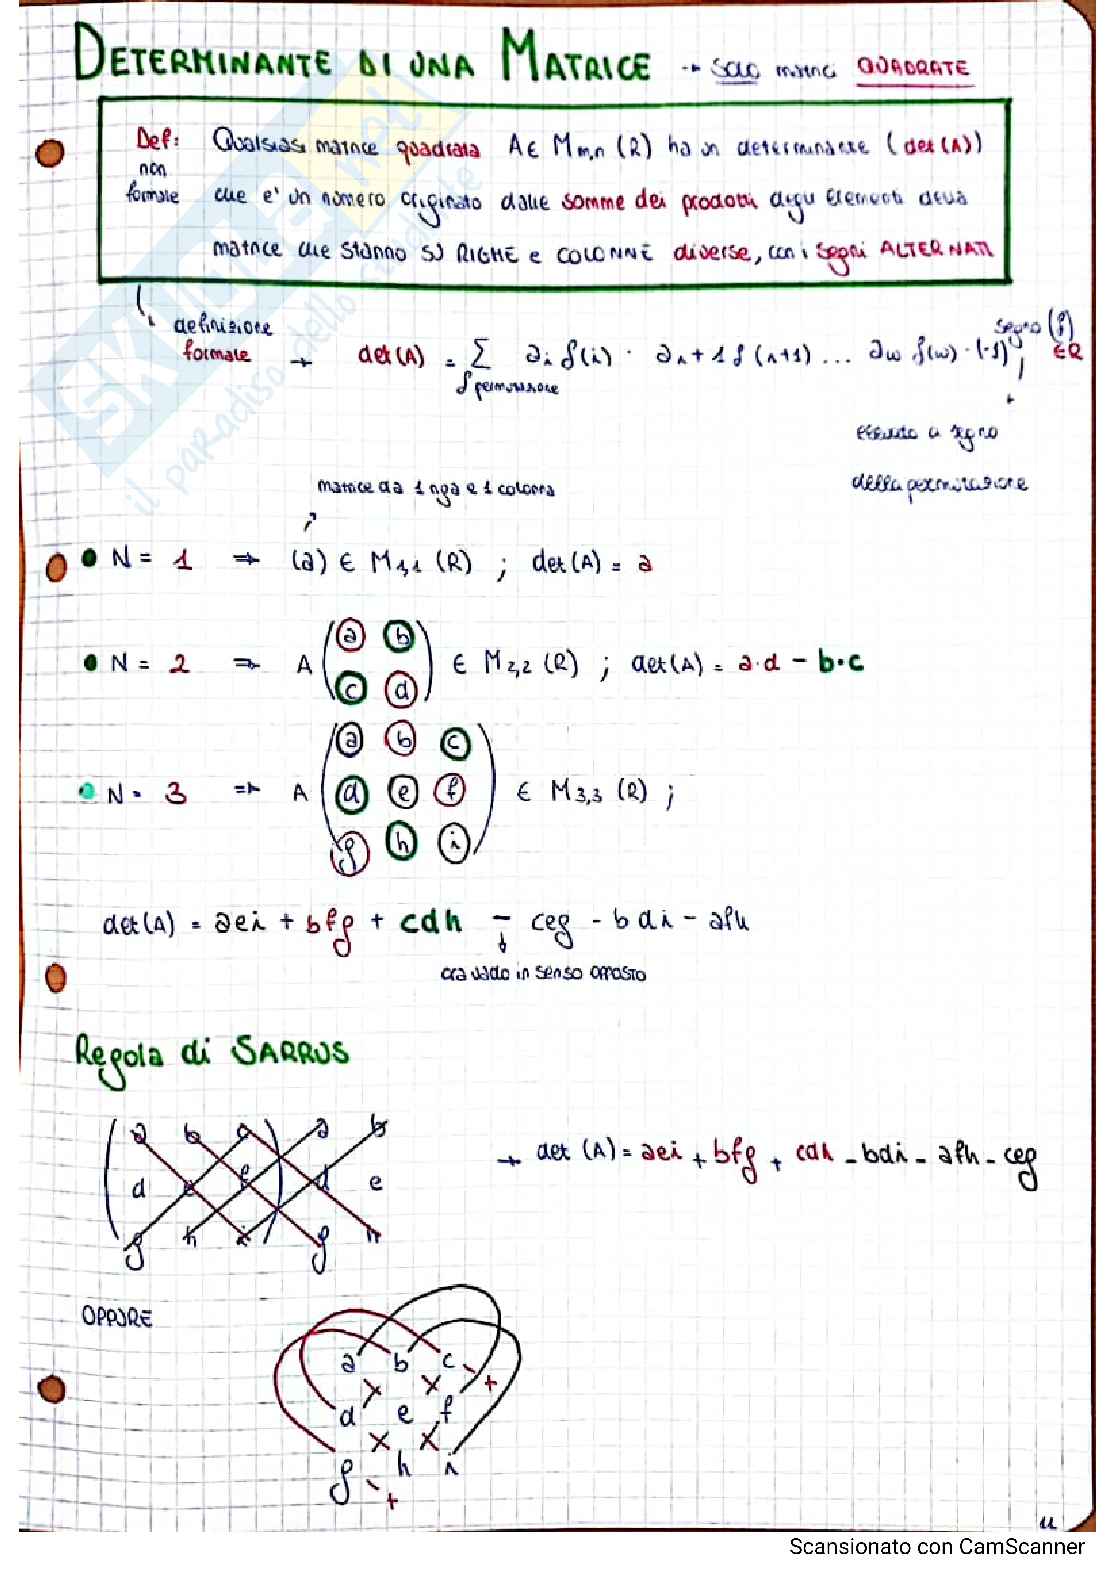 DETERMINANTE DI UNA MATRICE → SOLO matrici QUADRATE
Def: Qualsiasi matrice quadrata A∈ Mm,n (R) ha un determinante (det(A))
non
formale che e' un numero originato dalle somme dei prodotti degli elementi della
matrice che stanno SU RIGHE e COLONNE diverse, con i segni ALTERNATI
definizione
formale → det(A) = Σ
f permutazione
segno (f)
∈R
della permutazione
matrice da 1 riga e 1 colonna
N = 1 ⇒ (a) ∈ M1,1 (R) ; det(A) = a
N = 2 ⇒ A (a b
c d) ∈ M2,2 (R) ; det(A) = a·d - b·c
N = 3 ⇒ A (a b c
d e f
g h i) ∈ M3,3 (R) ;
det(A) = aei + bfg + cdh - ceg - bdi - afh
ora vado in senso opposto
Regola di SARRUS
(a b c) a b
d e f d e
g h i g h
→ det (A) = aei + bfg + cdh - bdi - afh - ceg
OPPURE
a b c
d e f
g h i
+
+
SKUOLA.net
il paradiso dello studente
Scansionato con CamScanner